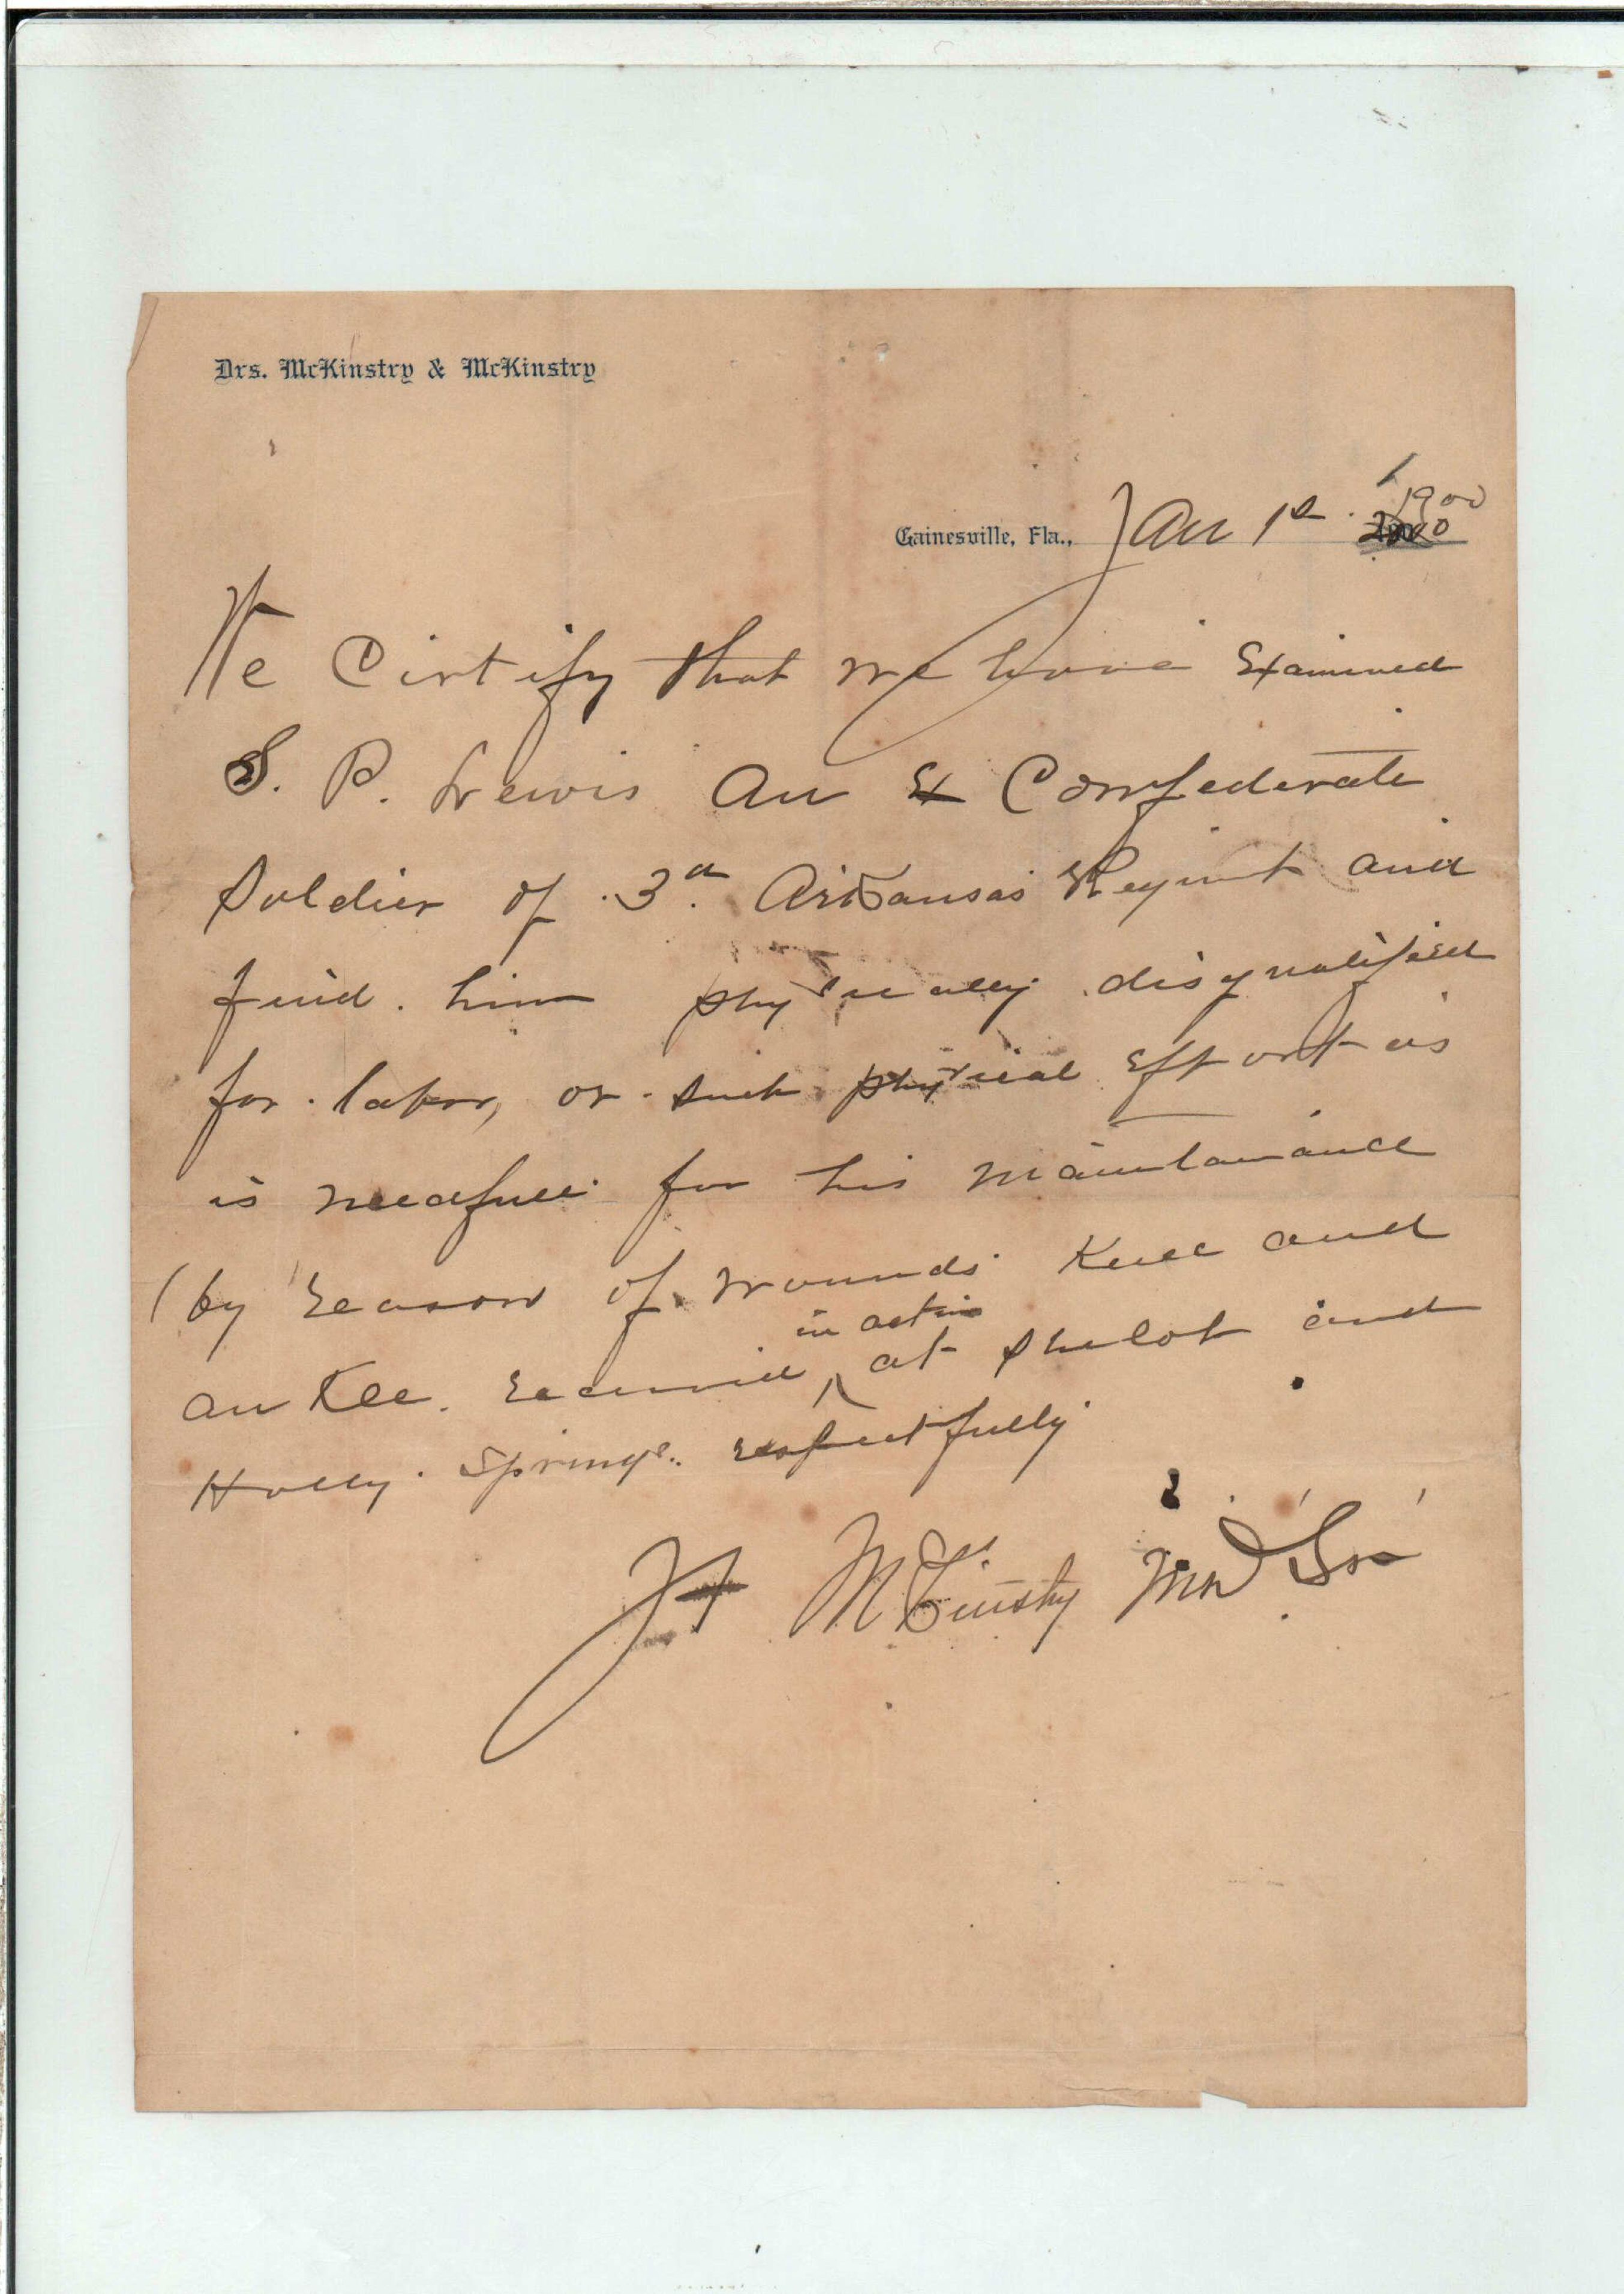 Drs. McKinstry & McKinstry
Gainesville, Fla., Jan 1st 1900
We Cirtify that we have Examined
S. P. Lewis An Ex Confederate
Soldier of 3d. Arkansas Regimt and
find him physically disqualified
for labor, or such physical Effort as
is needfull for his maintanance
(by reason of wounds Knee and
in action
Ankle. received at Shiloh and
Holly Springs. respectfully
McKinstry MD Sr